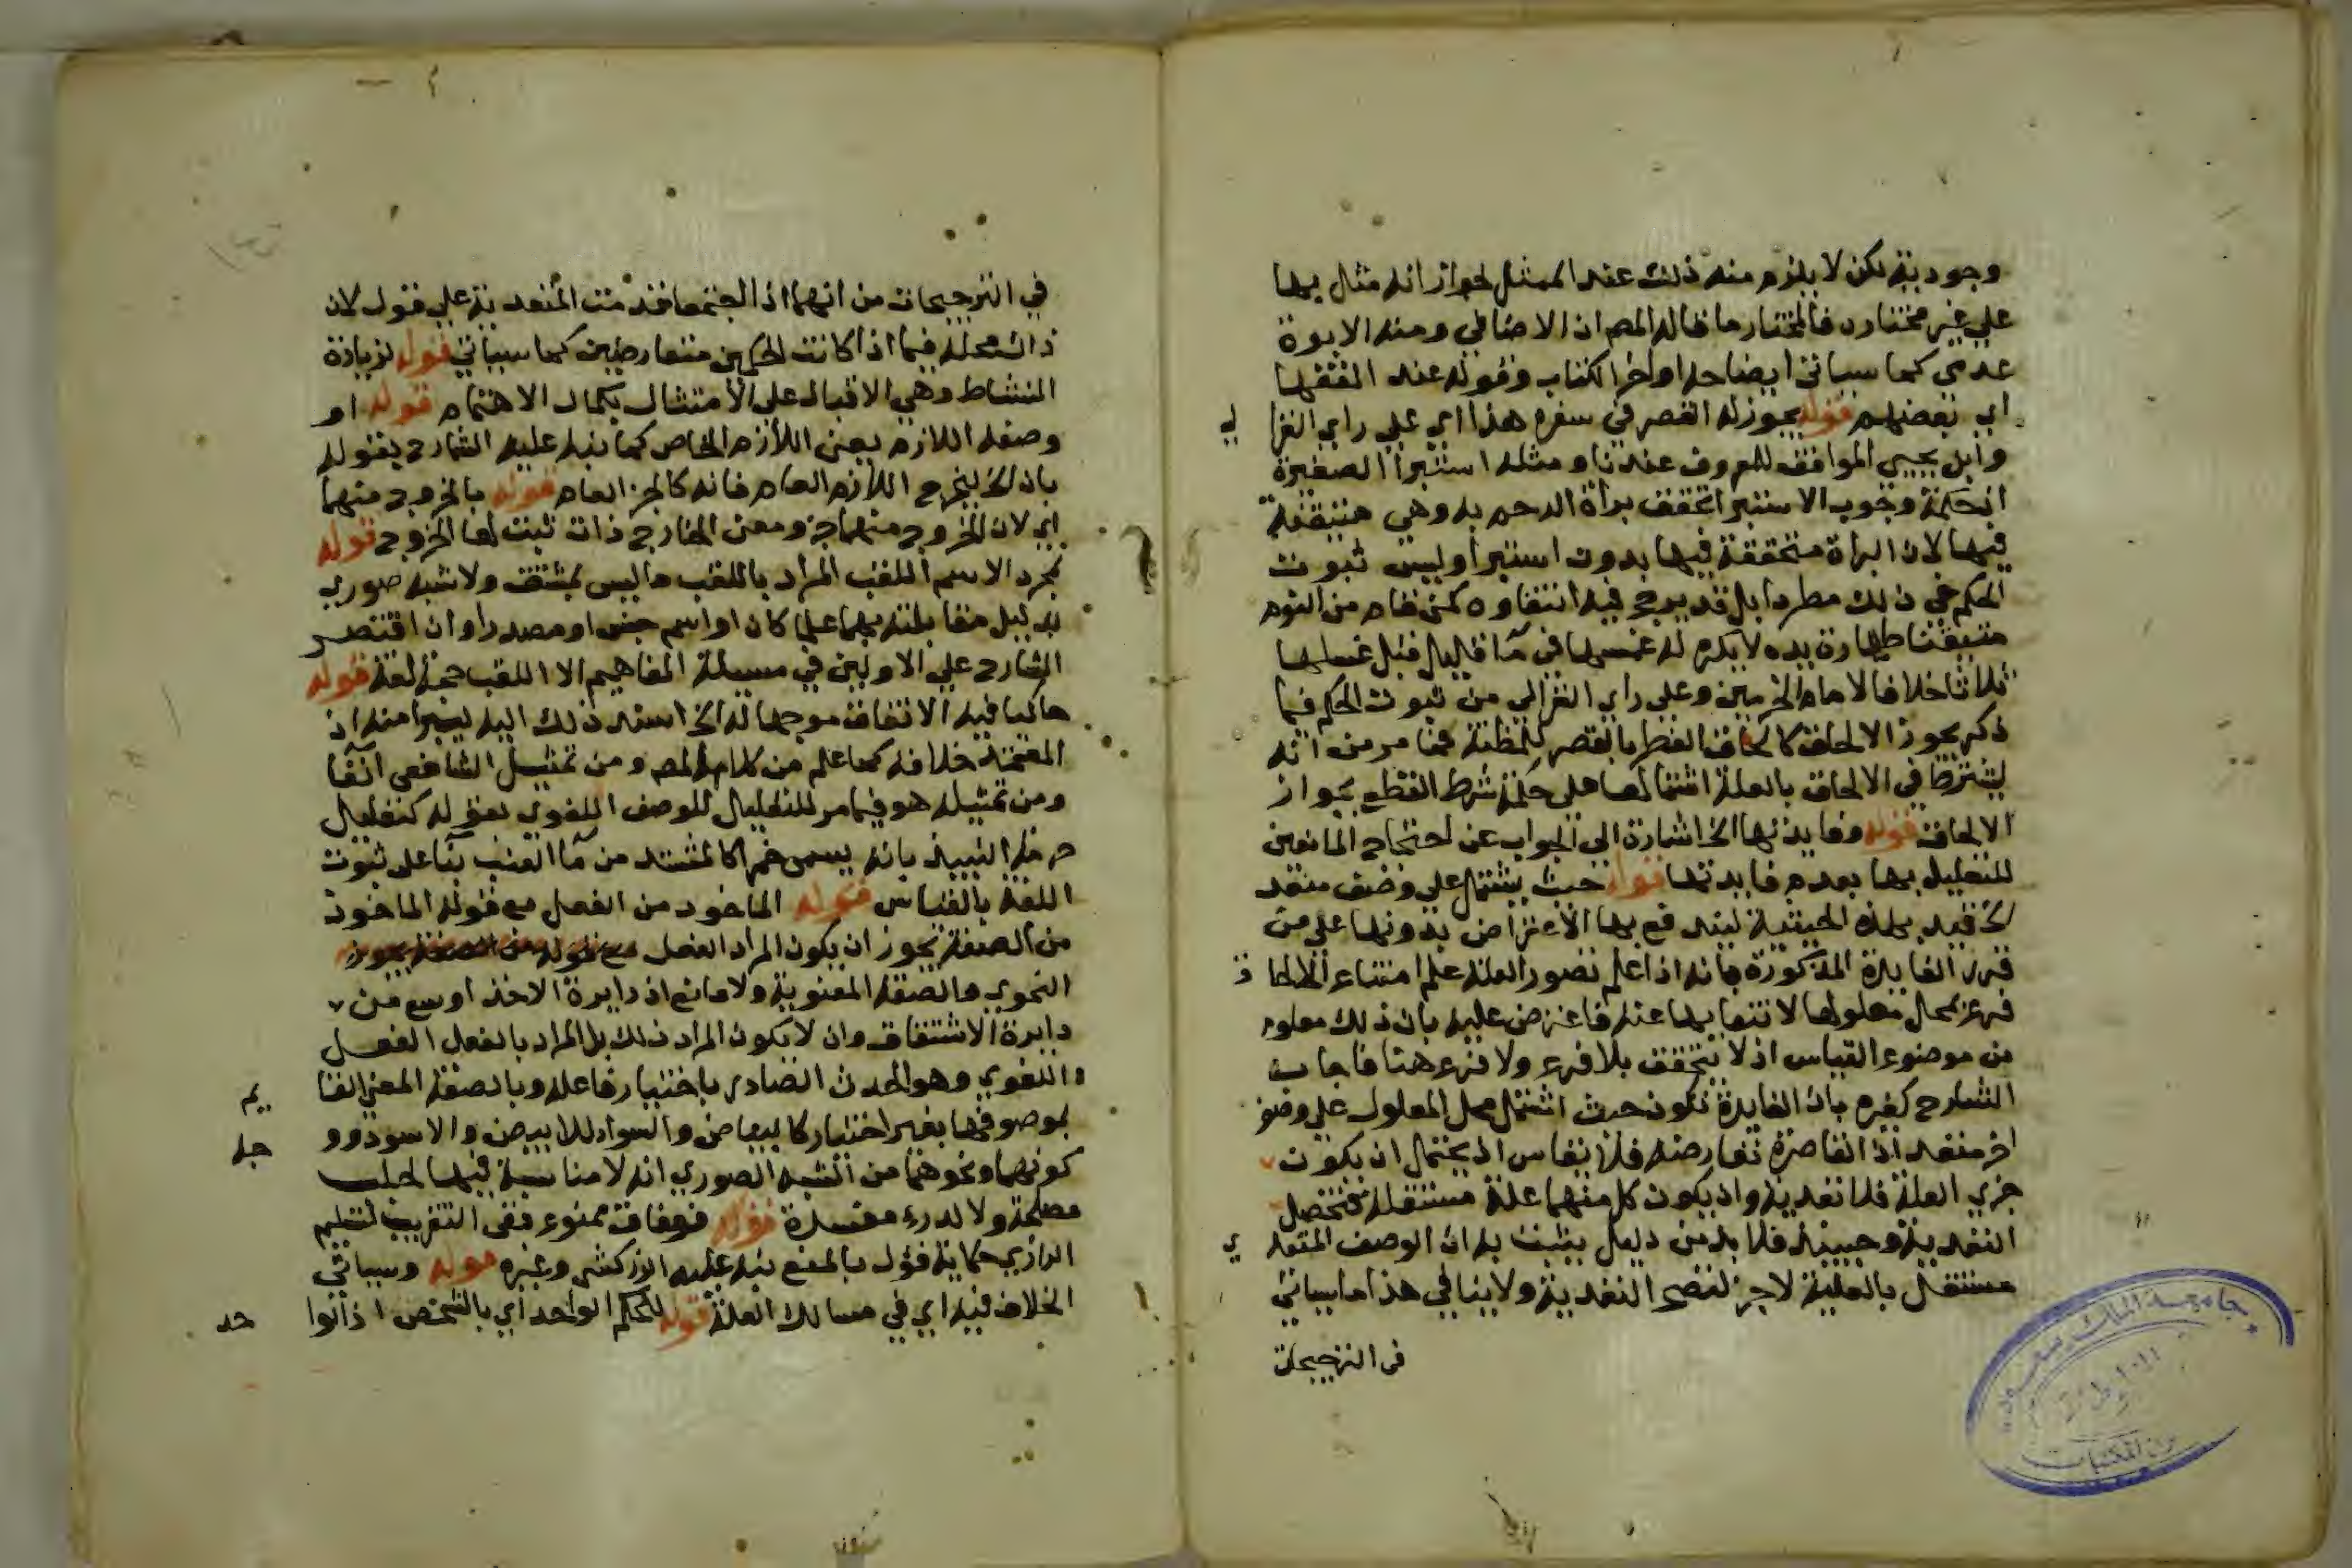 وجودية لكن لا يلزم منه ذلك عند الممثل لجواز انه مثال بها
علي غير مختاره فالمختار ما قاله المص ان الاضافي ومنه الابوة
عدمي كما سياتي ايضاحه اواخر الكتاب وقوله عند الفقها
اي بعضهم قوله يجوز له القصر في سفره هذا اي علي راي الغزا لي
وابن يحيي الموافق للمعروف عندنا ومثله استبرا الصغيرة
ان حكمة وجوب الاستبرا تحقق براة الرحم به وهي متيقنة
فيها لان البراة متحققة فيها بدون استبرا وليس ثبوت
الحكم في ذلك مطردا بل قد يرجح فيه انتفاوه كمن قام من النوم
متيقنا طهارة يده لا يكره له غمسها في ما قليل قبل غسلها
ثلاثا خلافا لامام الحرمين وعلي راي الغزالي من ثبوت الحكم فيما
ذكر يجوز الالحاق كالحاق الفطر بالقصر للمظنة فما مر من انه
يشترط في الالحاق بالعلة اشتمالها علي حكمة شرط للقطع بجواز
الالحاق قوله وفايدتها الخ اشارة الي الجواب عن احتجاج المانعين
للتعليل بها بعدم فايدتها قوله حيث يشتمل علي وصف متعد
الخ قيد بهذه الحيثية ليندفع بها الاعتراض بدونها علي من
قرر الفايدة المذكورة بانه اذا علم قصور العلة علم امتناع الالحا ق
فرع بمحل معلولها لانتفايها عنه فاعترض عليه بان ذلك معلوم
من موضوع القياس اذ لا يتحقق بلا فرع ولا فرع هنا فاجاب
الشارح كغيره بان الفايدة تكون حيث اشتمل محل المعلول علي وصف
اخر متعد اذ القاصرة تعارضه فلا يقاس اذ يحتمل ان يكون
جزي العلة فلا تعدية وان يكون كل منهما علة مستقلة فتحصل
التعدية وحينئذ فلا بد من دليل يثبت به ان الوصف المتعد ي
مستقل بالعلية لا جزء لتصح التعدية ولا ينافي هذا ما سياتي
في الترجيحات
في الترجيحات من انهما اذا اجتمعا قدمت المتعدية علي قول لان
ذاك محله فيما اذا كانت الحكمين متعارضين كما سياتي قوله لزيادة
النشاط وهي الاقبال علي الامتثال بكمال الاهتمام قوله او
وصفه اللازم يعني اللازم الخاص كما نبه عليه الشارح بقوله
بان الخ ليخرج اللازم العام فانه كالجزء العام قوله بالخروج منهما
اي لان الخروج منهما جزء ومعني الخارج ذات ثبت لها الخروج قوله
بمجرد الاسم اللقب المراد باللقب ما ليس بمشتق ولا شبه صوري
بدليل مقابلته بهما علما كان او اسم جنس او مصدرا وان اقتصر
الشارح علي الاولين في مسيلة المفاهيم الا اللقب حجة لغة قوله
حاكيا فيه الاتفاق موجها له الخ اسند ذلك اليه ليتبرا منه اذ
المعتمد خلافه كما علم من كلام المص ومن تمثيل الشافعي آنفا
ومن تمثيله هو فيما مر للتعليل للوصف اللغوي بقوله كتعليل
حرمة النبيذ بانه يسمي خمرا كالمشتد من ما العنب بنا علي ثبوت
اللغة بالقياس قوله الماخوذ من الفعل مع قوله الماخوذ
من الصفة يجوز ان يكون المراد الفعل
النحوي والصفة المعنوية ولا مانع اذ دايرة الاخذ اوسع من
دايرة الاشتقاق وان لا يكون المراد ذلك بل المراد بالفعل الفعل
اللغوي وهو الحدث الصادر باختيار فاعله وبالصفة المعني القا يم
بموصوفها بغير اختيار كالبياض والسواد للابيض والاسود وو جه
كونهما ونحوهما من الشبه الصوري انه لا مناسبة فيها لجلب
مصلحة ولا لدرء مفسدة قوله فوفاق ممنوع ففي التقريب لسليم
الرازي حكاية قول بالمنع نبه عليه الزركشي وغيره قوله وسياتي
الخلاف فيه اي في مسالك العلة قوله للحكم الواحد اي بالشخص اذ الوا حد